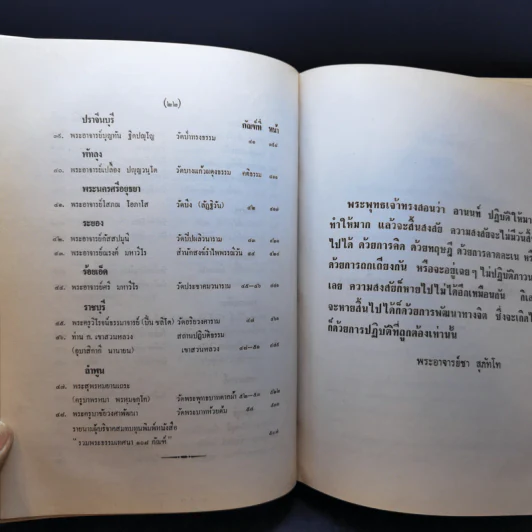 (๒๒)
กัณฑ์ที่ หน้า
ปราจีนบุรี
๓๙. พระอาจารย์บุญทัน ฐิตปญฺโญ วัดป่าทรงธรรม
พัทลุง
๔๐. พระอาจารย์เปลื้อง ปญฺญวนฺโต วัดบางแก้วผดุงธรรม
พระนครศรีอยุธยา
๔๑. พระอาจารย์โสภณ โอภาโส วัดบึง (ลัฏฐิวัน)
ระยอง
๔๒. พระอาจารย์ภัสสปมุนี วัดปิปผลิวนาราม
๔๓. พระอาจารย์ณรงค์ มหาวิโร สำนักสงฆ์จำไทพรณ์วัน
ร้อยเอ็ด
๔๔. พระอาจารย์ศรี มหาวิโร วัดประชาคมวนาราม
ราชบุรี
๔๕. พระครูวิโรจน์ธรรมาจารย์ วัดอริยวงศาราม
๔๖. ท่าน ก. เขาสวนหลวง สถานปฏิบัติธรรม
เขาสวนหลวง
ลำพูน
๔๗. พระสุพรหมยานเถระ
(ครูบาพรหมา พรหฺมจกฺโก) วัดพระพุทธบาทตากผ้า
๔๘. พระครูบาชัยวงศาพัฒนา วัดพระบาทห้วยต้ม
รายนามผู้บริจาคสมทบทุนพิมพ์หนังสือ
"รวมพระธรรมเทศนา ๑๐๗ กัณฑ์"
พระพุทธเจ้าทรงสอนว่า อานนท์ ปฏิบัติให้มาก
ทำให้มาก แล้วจะสิ้นสงสัย ความสงสัยจะไม่มีวันสิ้น
ไปได้ ด้วยการคิด ด้วยทฤษฎี ด้วยการคาดคะเน
ด้วยการถกเถียงกัน หรือจะอยู่เฉยๆ ไม่ปฏิบัติภาวนา
เลย ความสงสัยก็หายไปไม่ได้อีกเหมือนกัน
จะหายสิ้นไปได้ก็ด้วยการพัฒนาทางจิต ซึ่งจะเกิด
ก็ด้วยการปฏิบัติที่ถูกต้องเท่านั้น
พระอาจารย์ชา สุภัทโท